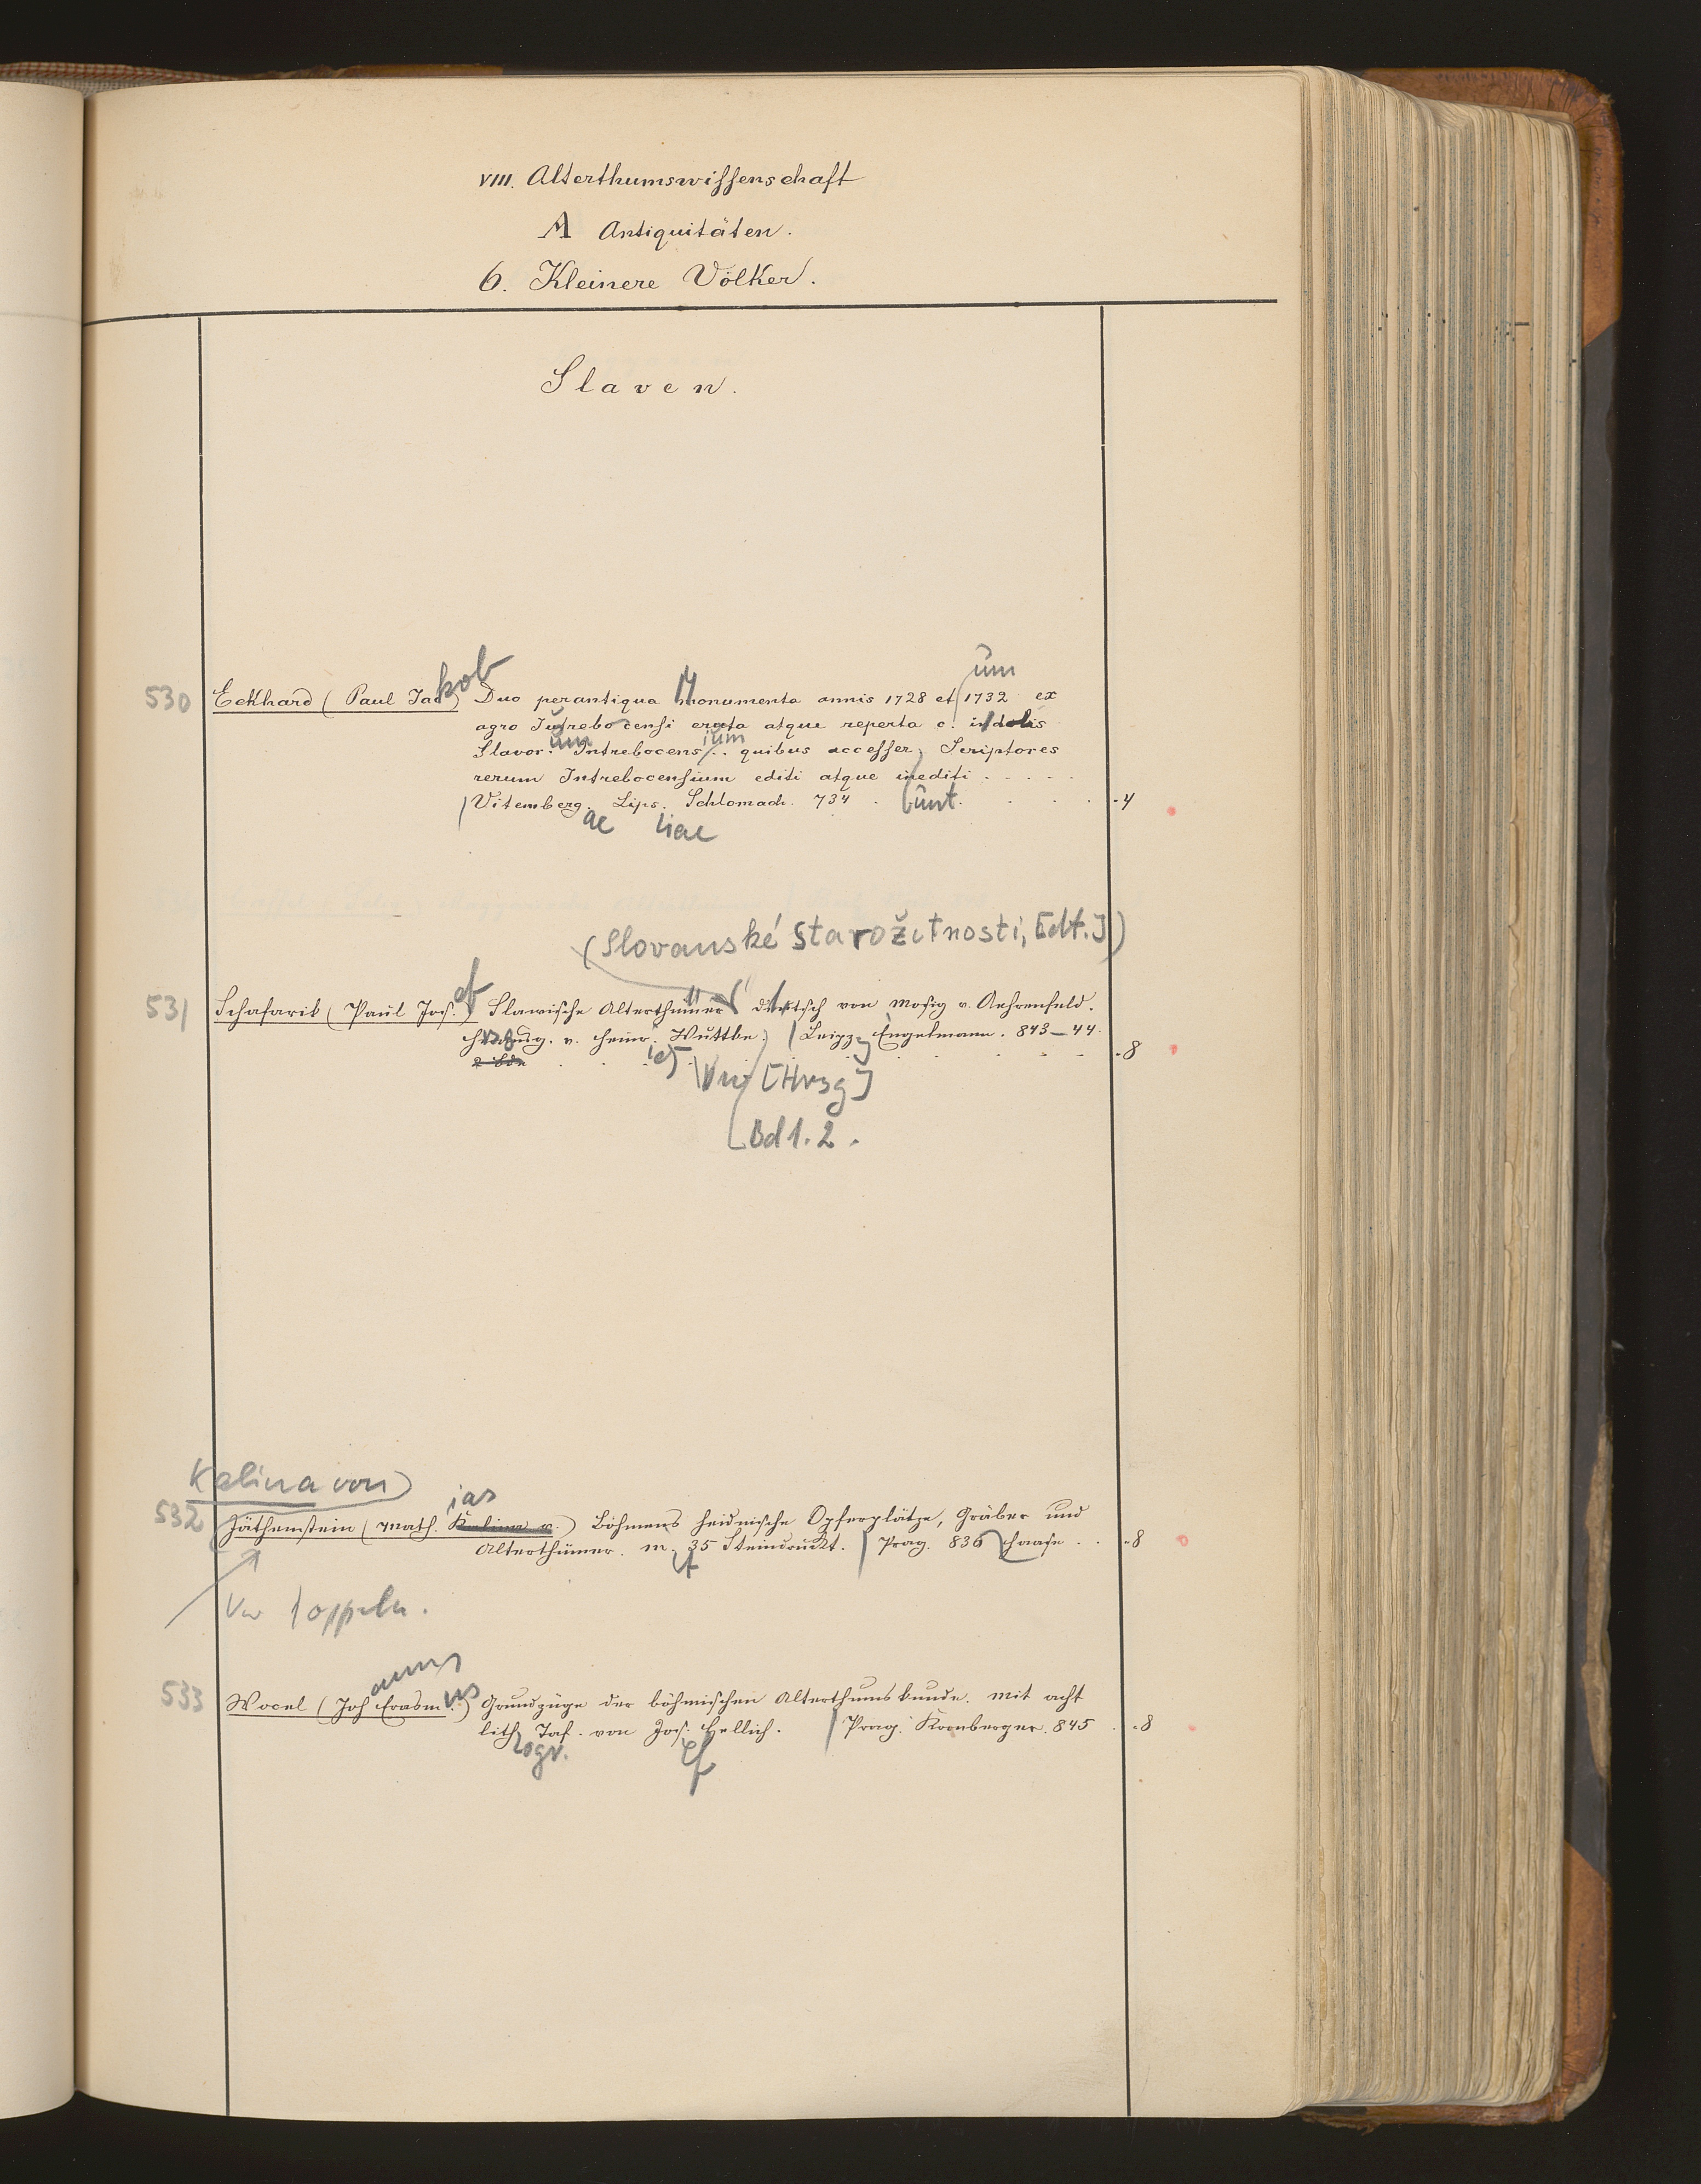 VIII. Alterthumswissenschaft
A Antiquitäten.
6. Kleinere Völker.
Slaven.
kob M um
530 Eckhard (Paul Jac) Duo perantiqua monumenta annis 1728 et 1732 ex
agro Jutrebocensi eruta atque reperta c.
um ium
Slavor. Jutrebocens.. quibus accesser, Scriptores
rerum Jutrebocensium editi atque inediti . . . . .
Vitemberg. Lips. Schlomach. 734 . (unt. . . . . 4
ae siae
(Slovanské Starožitnosti, [dt.])
ef
531 Schafarik (Paul Jos.) Slawische Alterthümer deutsch von Mosig v. Aehrenfeld.
v. Heinr. Wuttke.) Leipz. Engelmann. 843–44.
2 Bde . . . . . 8
[Hrsg]
Bd 1. 2.
Kalina von)
ias
532 Jäthenstein (Math. Kalina v.) Böhmens heidnische Opferplätze, Gräber und
Alterthümer. m. 35 Steindruckt. Prag. 836 Haase . . . 8
f
533 Wocel (Joh Erasm.) Grundzüge der böhmischen Alterthumskunde. Mit acht
annus
lith. Taf. von Jos. Hellich. Prag. Kronberger. 845 . . 8
ogr. ef